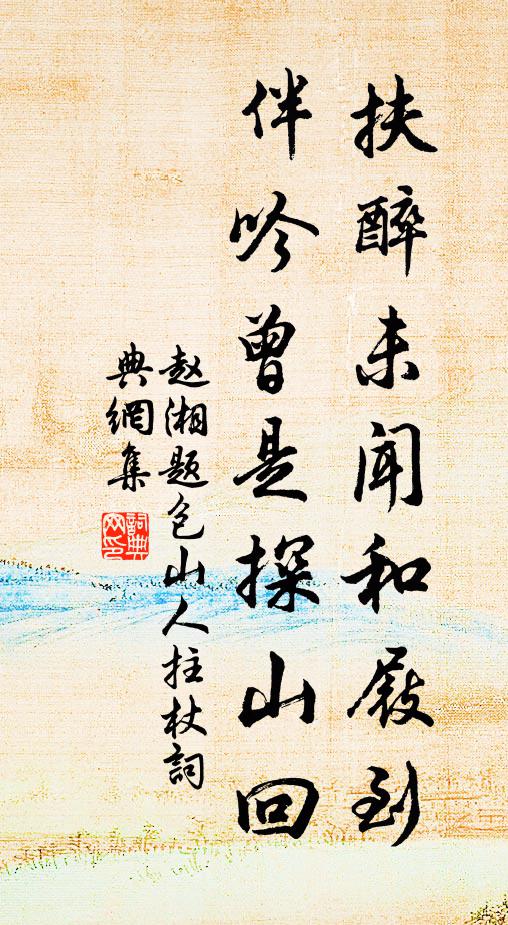 扶醉未闻和屐到
伴吟曾是探山回
赵湘题包山人拄杖詞
典網集
詞典网印